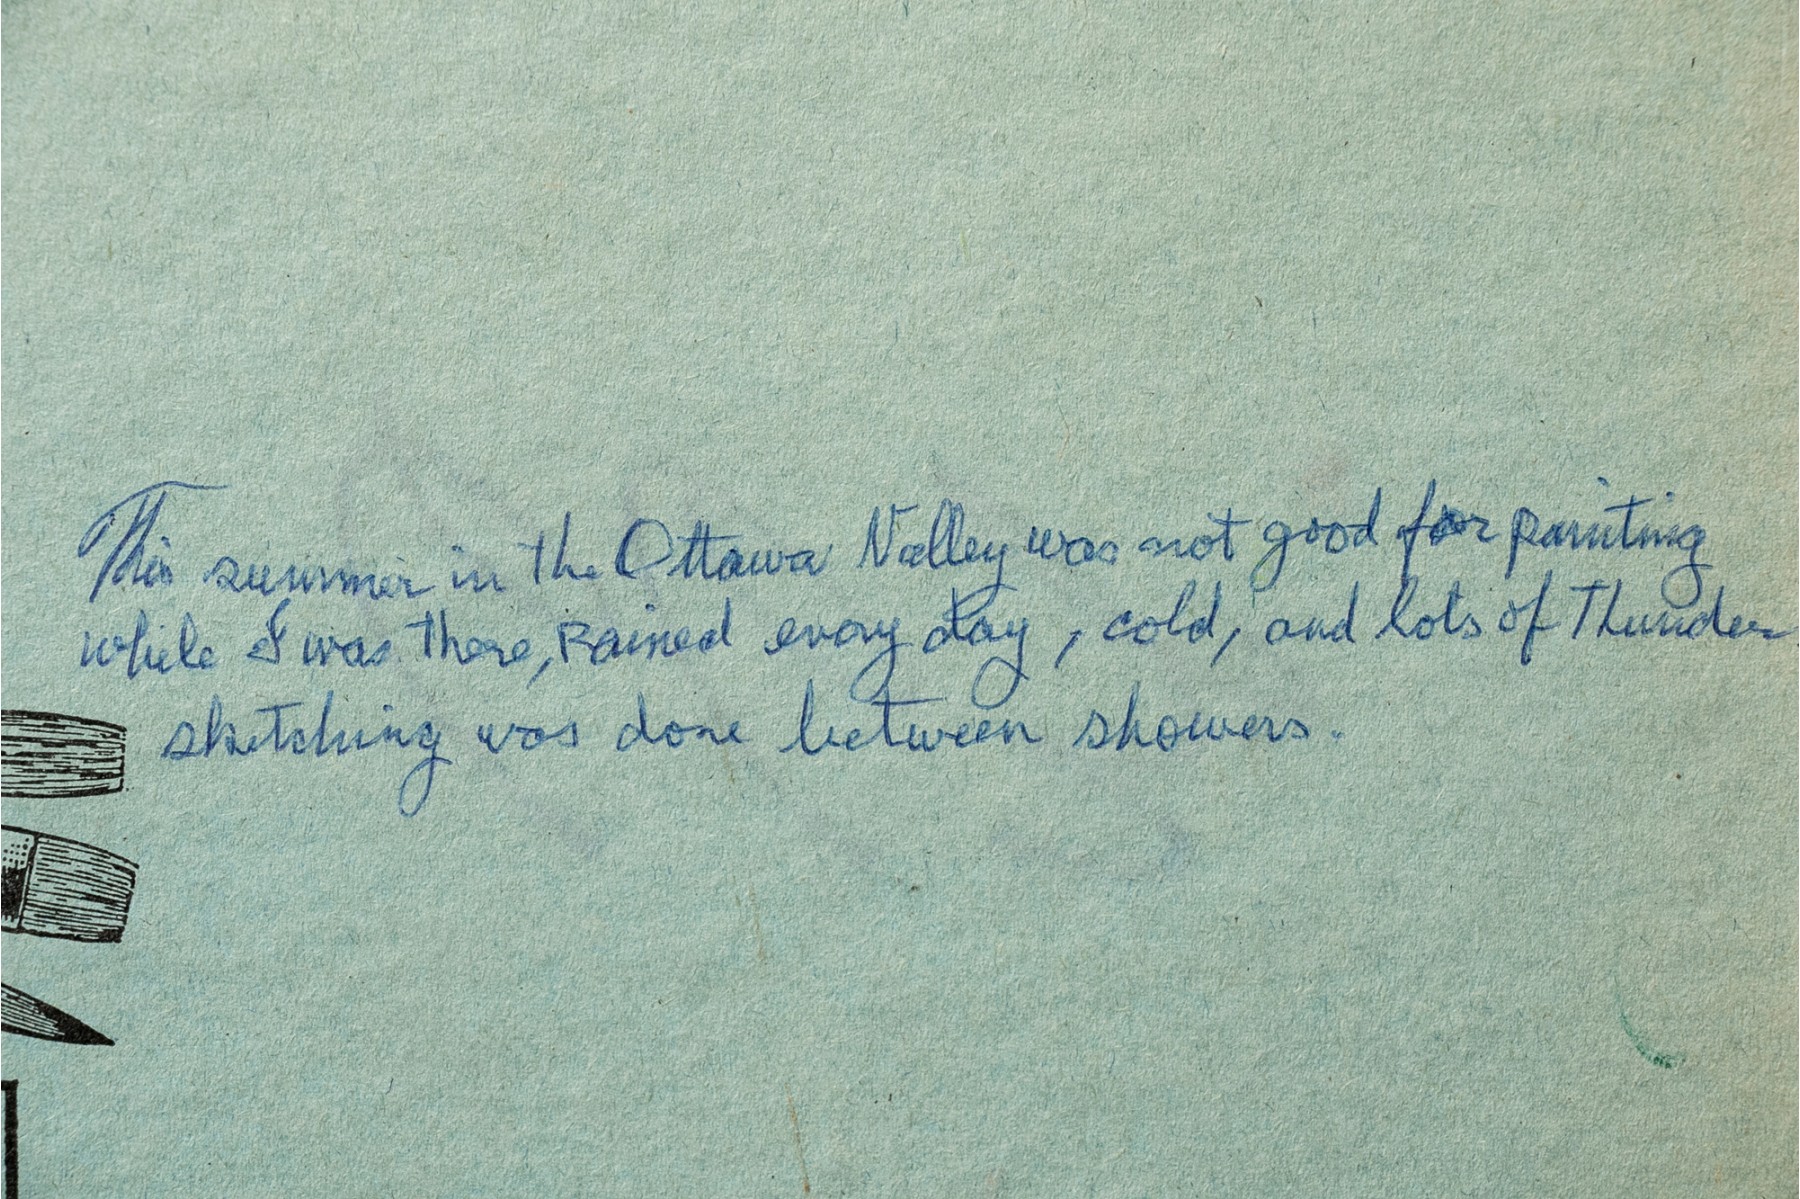 This summer in the Ottawa Valley was not good for painting
while I was there, rained every day, cold, and lots of Thunder
sketching was done between showers.